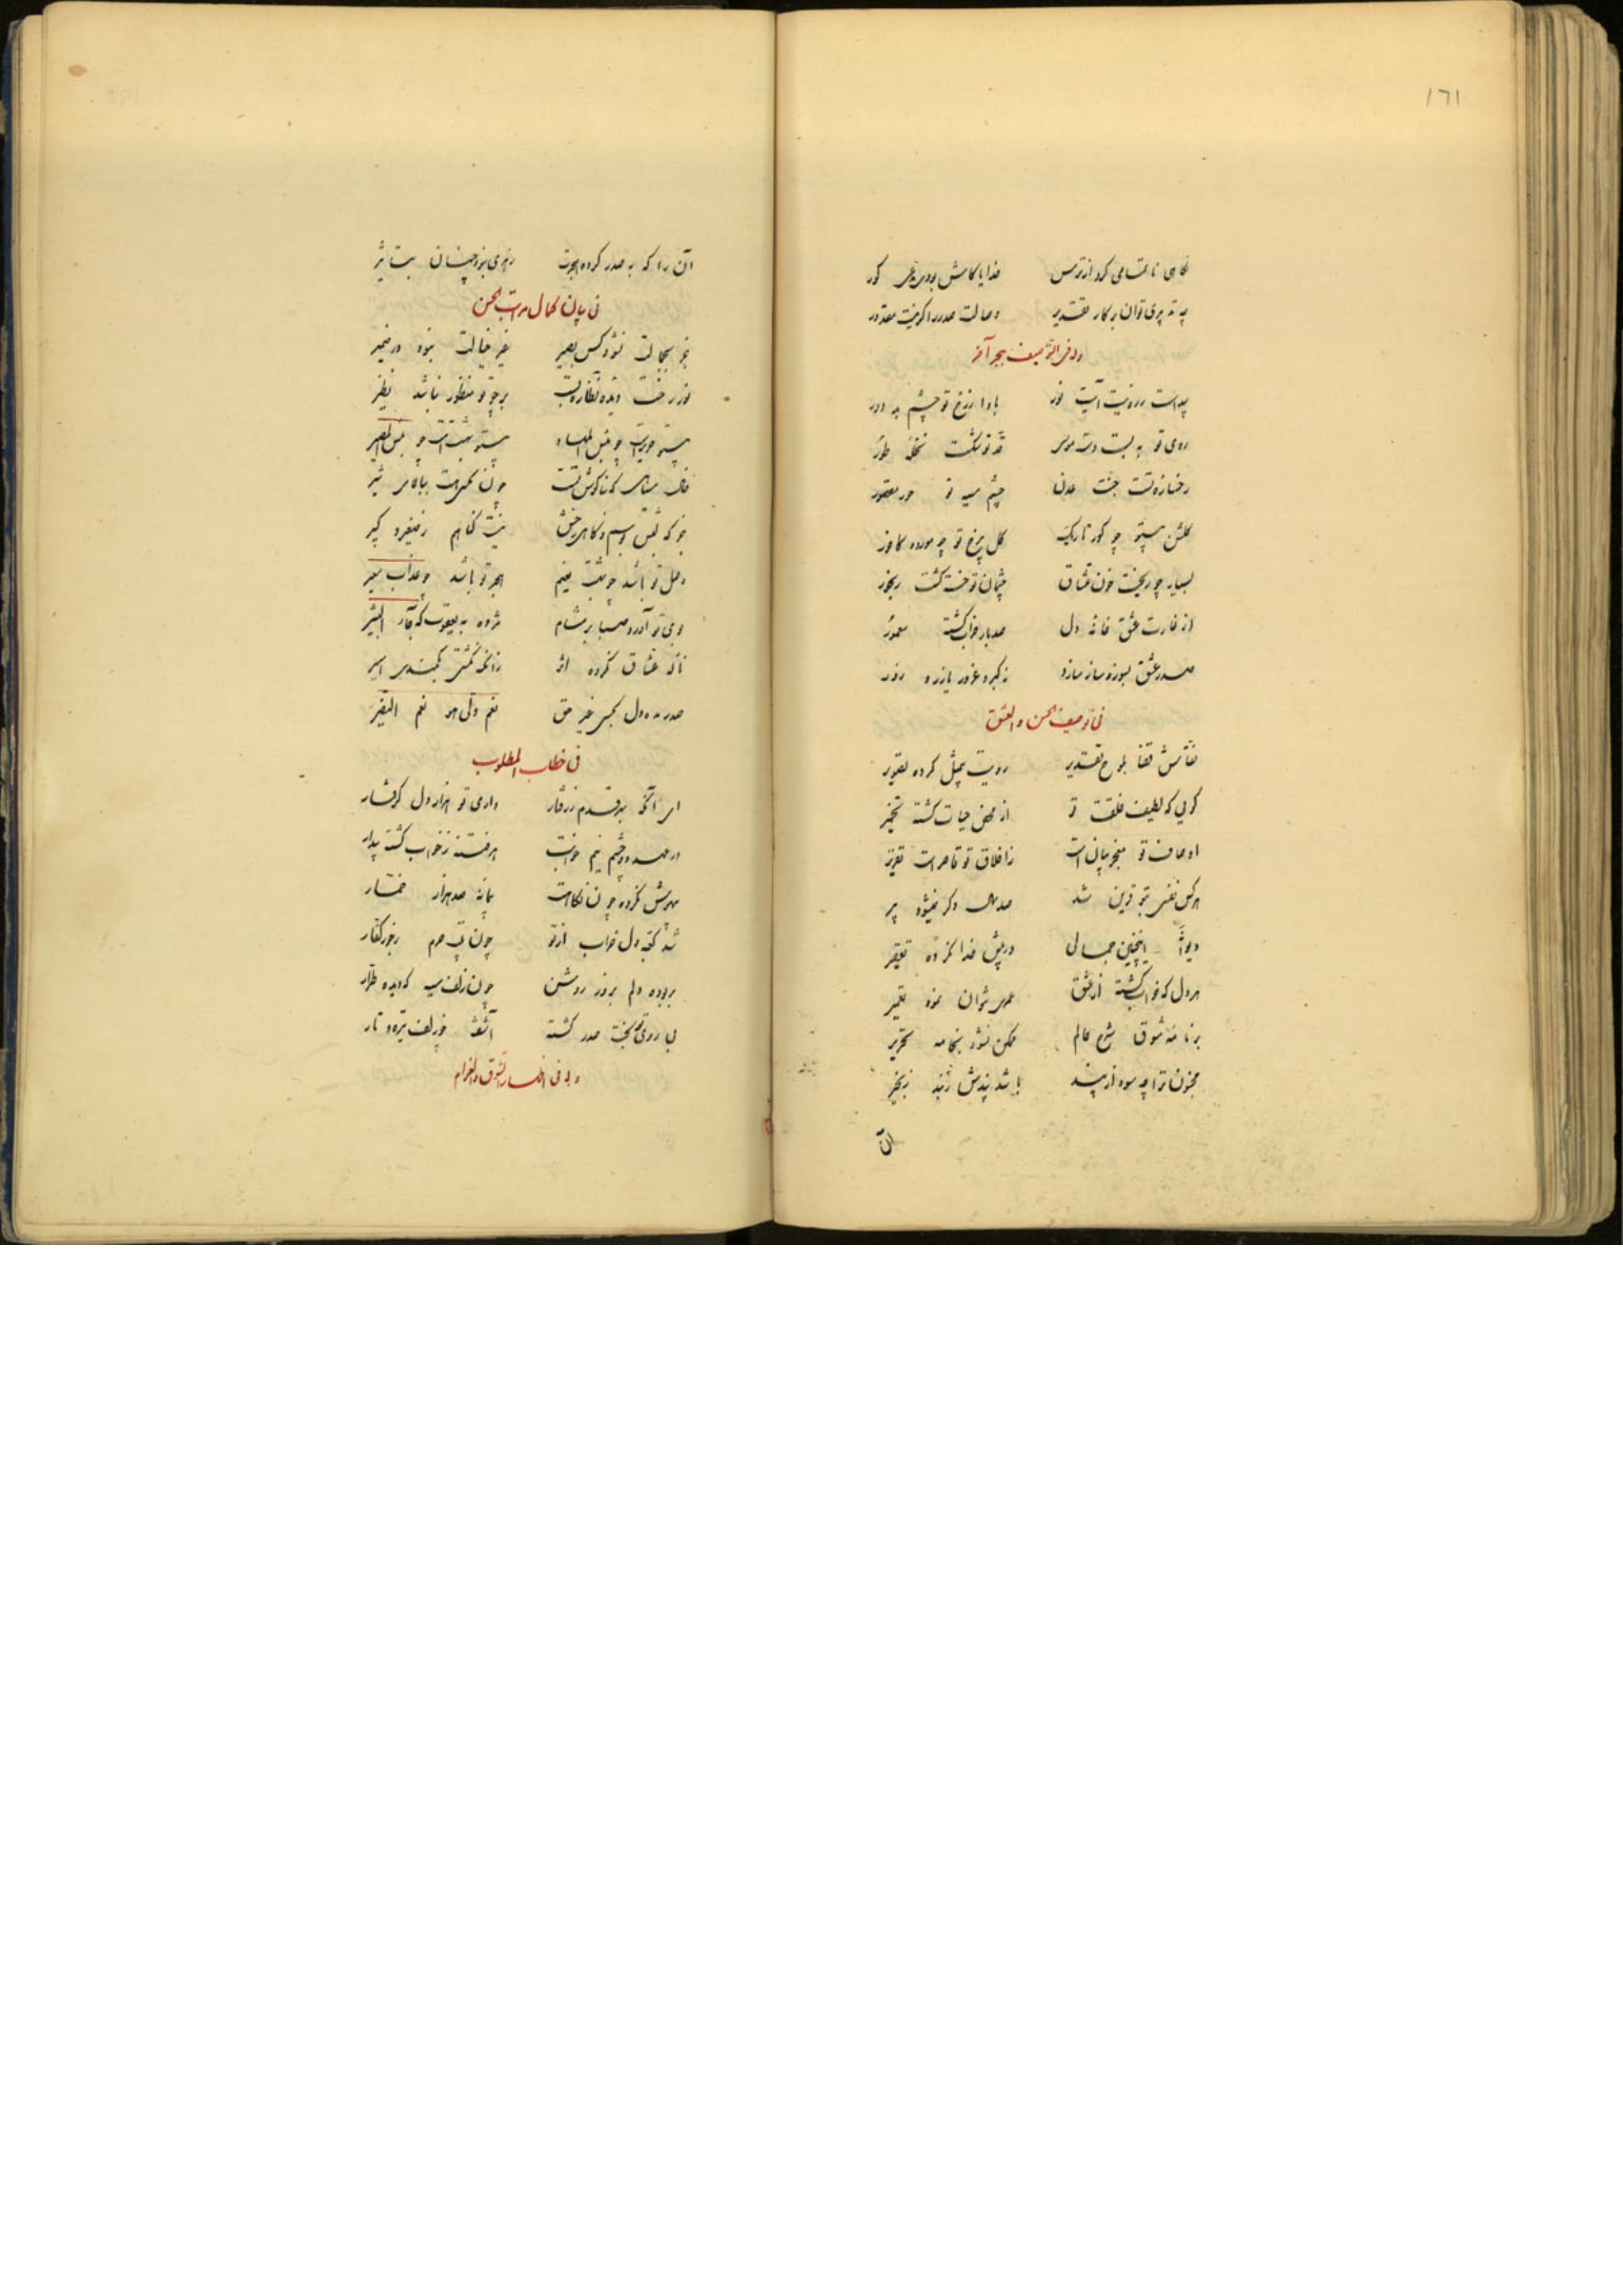 ١٦١
نگاهی ناتمامی کرد از ترس خدایا کاش بودی غیر کور
چه تدبیری توان بر کار تقدیر وصالت صدر را گر نیست مقدور
وله فی التوصیف بحر آخر
پیداست ز رویت آیت نور بادا ز رخ تو چشم بد دور
روی تو به بست دست موسی قد تو شکست نخلهٔ طور
رخسارهٔ تست جنت عدن چشم سیه تو حور مقصور
گلشن بی‌تو چو گور تاریک گل بر رخ تو چه مرده کافور
بسیار چو ریخت خون عشاق چشمان تو خسته گشت رنجور
از غارت عشق خانه دل صد بار خراب گشته معمور
صدر عشق بسوز و ساز سازد نه کبر و غرور یا زر و زور
فی توصیف الحسن و العشق
نقاش قضا بلوح تقدیر رویت بمثل کرده تصویر
گویی که لطیف خلقت تو از محض حیات گشته تخمیر
اوصاف تو معجز بیان است ز اخلاق تو قاصر است تقریر
هر کس نفسی بتو قرین شد صد سال دگر نمیشود پیر
دیوانهٔ اینچنین جمالی در پیش خدا نکرده تقصیر
هر دل که خراب گشته از عشق نتوان نمود تعمیر
بر نامهٔ شوق شرح حالم ممکن نشود بخامه تحریر
مجنون ترا چه سود از پند باشد پندش ز بند زنجیر
آن
آن را که به صدر کرده هجرت زهری نبود چنان بتأثیر
فی بیان کمال مراتب الحسن
جز بجمالت نشود کس بصیر غیر خیالت نبود در ضمیر
نور رخت دیده نظاره بست بر چو تو منظور نباشد نظیر
بیتو حریر است چو بئس المهاد بیتو بهشت است چو بئس المصیر
جز که بلبش بوسم و نگاهی رخش نیست گناهم ز صغیر و کبیر
وصل تو باشد چو بهشت نعیم هجر تو باشد چو عذاب سعیر
بوی تو آورد صبا بر مشام مژده به یعقوب که جاء البشیر
ناله عشاق نکرده اثر زانکه نگشتی بکمندی اسیر
صدر مده دل بکسی غیر حق نعم ولی هو نعم النصیر
فی خطاب المطلوب
ای آنکه بهر قدم ز رفتار داری تو هزار دل گرفتار
در عهد دو چشم نیم خوابت هر فتنه ز خواب گشته بیدار
بیهوش نکرده چون نگاهت پیمانه صد هزار خمار
شد کعبه دل خراب از تو چون بیت حرم ز جور کفار
بربوده دلم بروز روشن چون زلف سیه که دیده طرار
بی روی تو بخت صدر گشته آشفته چو زلف تیره و تار
وله فی اظهار الشوق و الغرام